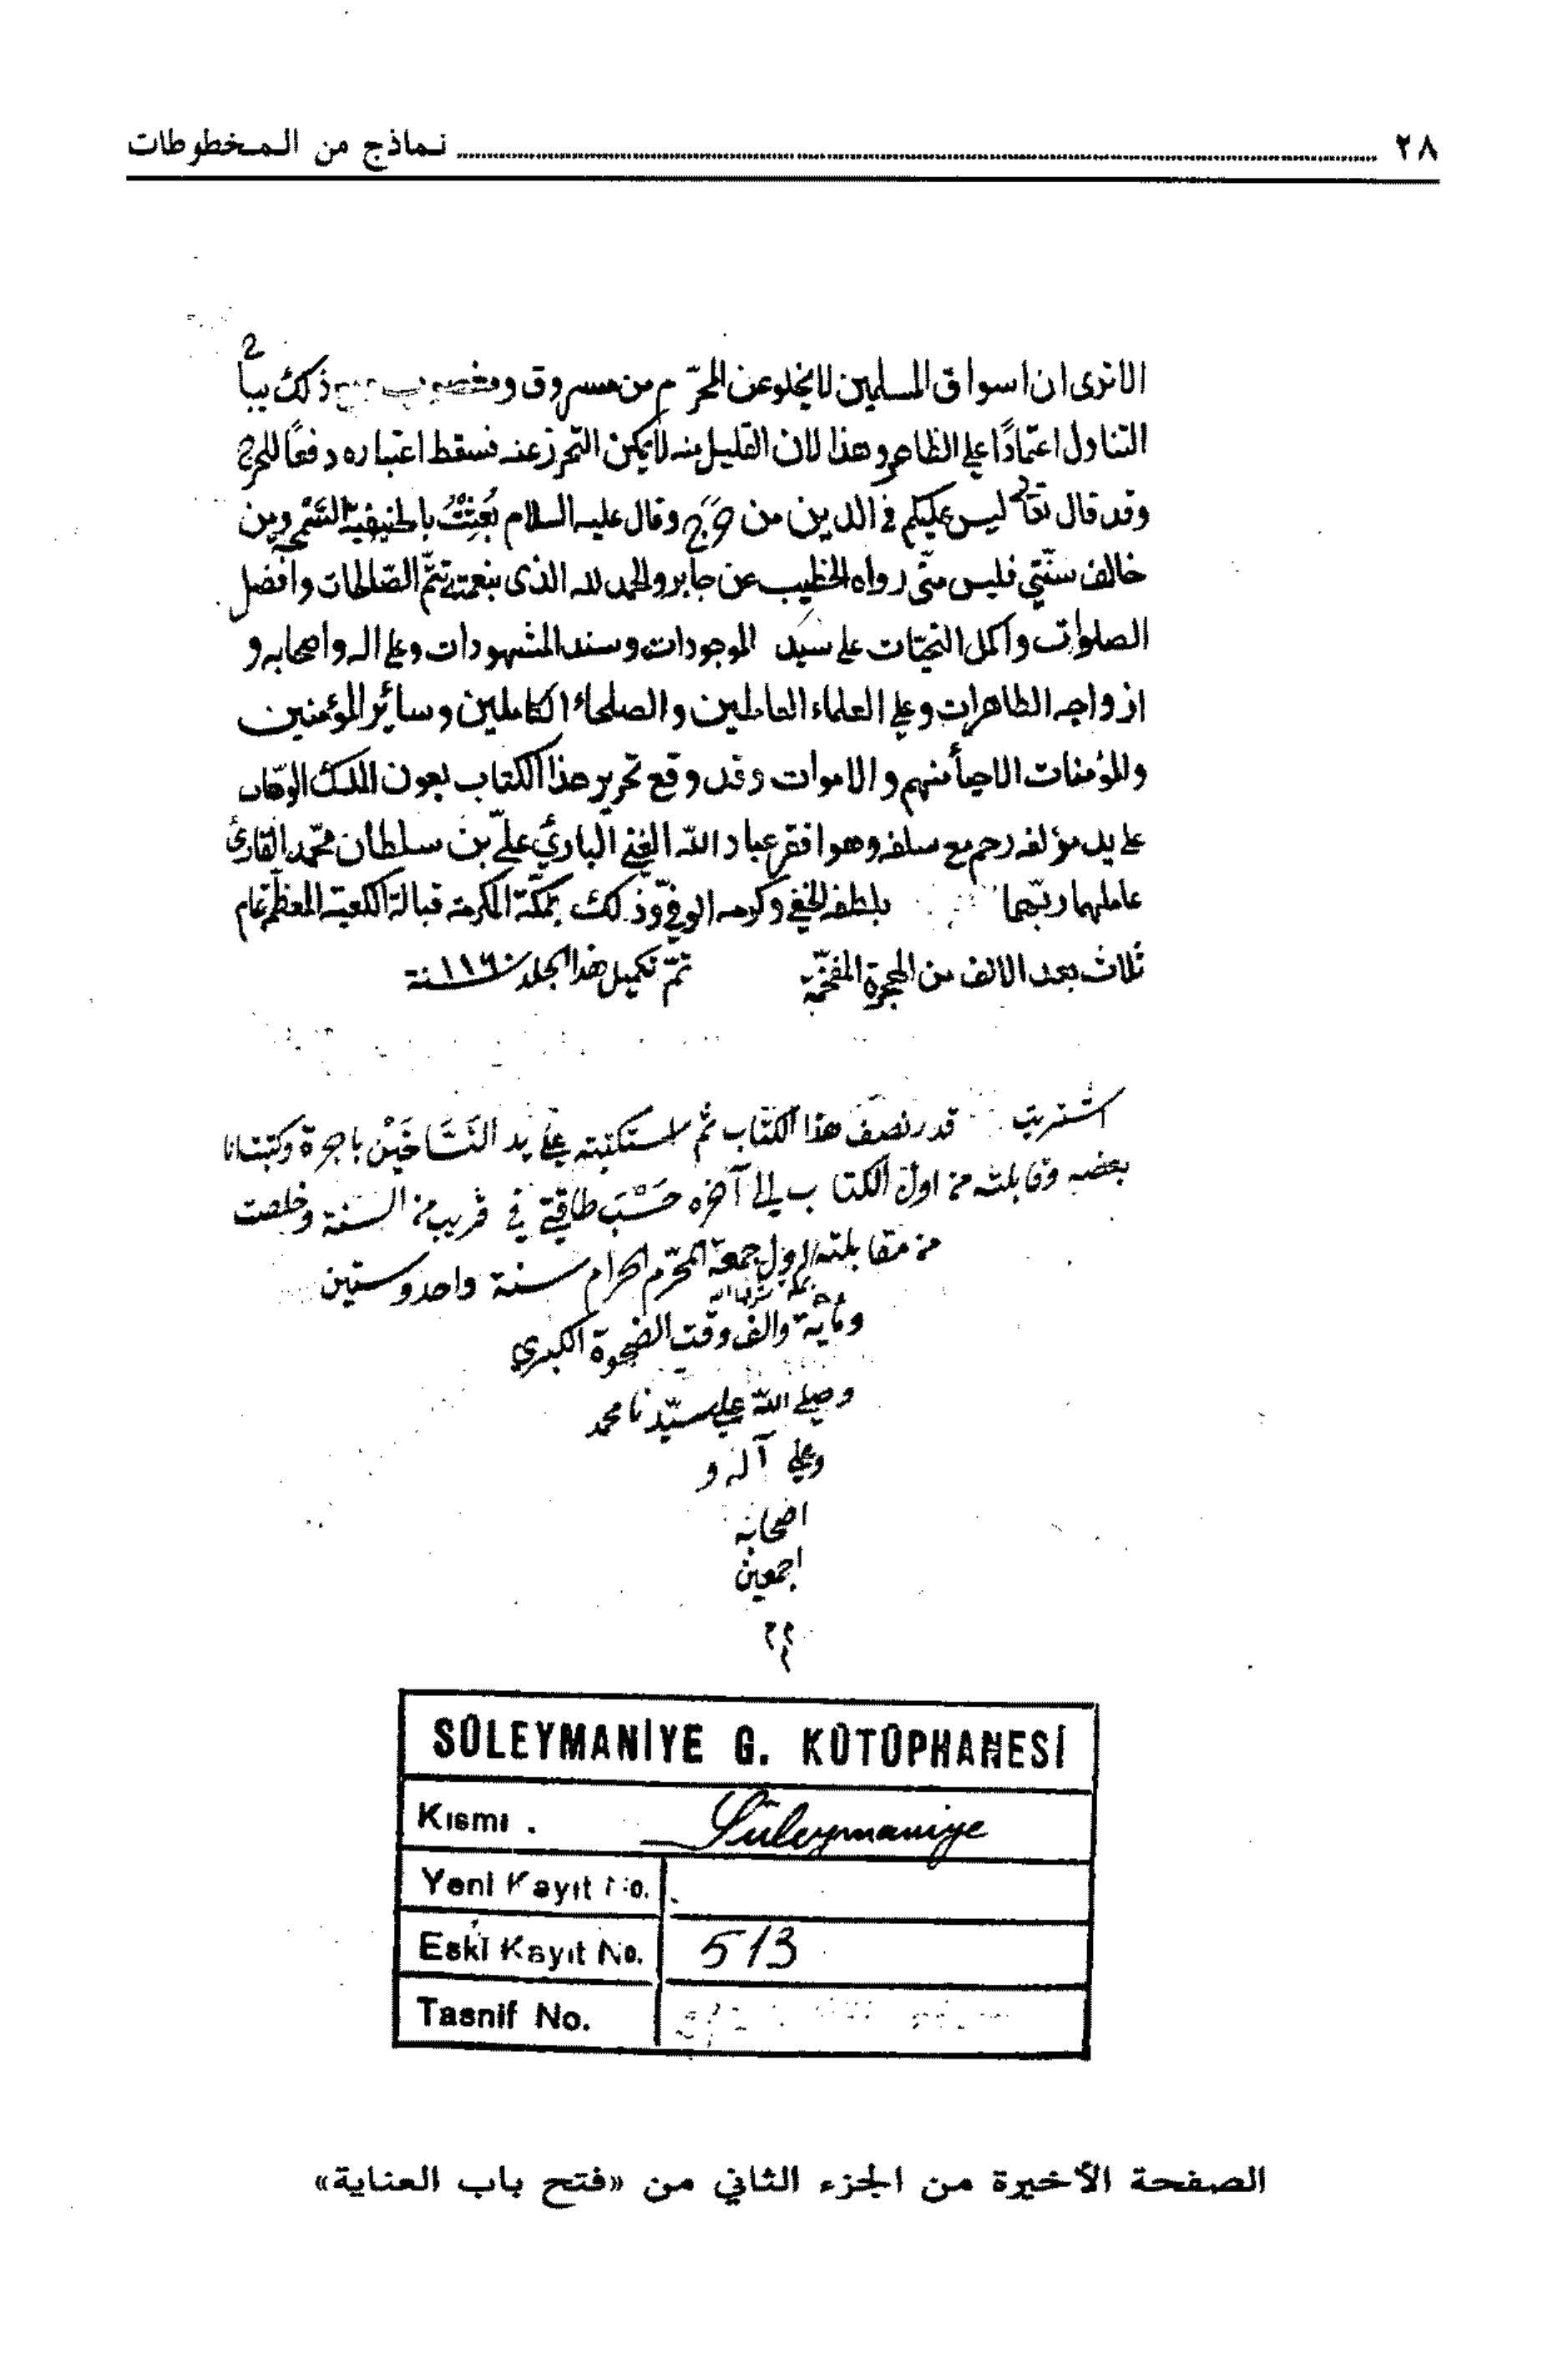 ٢٨ نماذج من المخطوطات
الا ترى ان اسواق المسلمين لا يخلو عن المحرّم من مسروق ومغصوب ومع ذلك يباح
التناول اعتمادًا على الظاهر وهذا لان القليل منه لا يمكن التحرز عنه فسقط اعتباره دفعًا للحرج
وقد قال تعالى ليس عليكم في الدين من حرج وقال عليه السلام بُعِثْتُ بالحنيفية السّمحة ومن
خالف سنّتي فليس منّي رواه الخطيب عن جابر والحمد لله الذى بنعمته تتمّ الصّالحات وافضل
الصلوات واكمل التحيّات على سيّد الموجودات وسند المشهودات وعلى اله واصحابه و
ازواجه الطاهرات وعلى العلماء العاملين والصلحاء الكاملين وسائر المؤمنين
والمؤمنات الاحيأ منهم والاموات وقد وقع تحرير هذا الكتاب بعون الملك الوهّاب
على يد مؤلفه رحم مع سلفه وهو افقر عباد الله الغني البارئ عليّ بن سلطان محمّد القارئ
عاملهما ربّهما بلطفه الخفي وكرمه الوفيّ وذلك بمكّة المكرمة قبالة الكعبة المعظّمة عام
ثلاث بعد الالف من الهجرة المفخّمة تمّ تكميل هذا المجلد سنة ١١٦٠
اشتريت قدر نصف هذا الكتاب ثم استكتبته على يد النَسَّاخَيْن باجرة وكتبت انا
بعضه وقابلته من اول الكتاب الى آخره حَسْبَ طاقتي في قريب من السنة وخلصت
من مقابلته اول جمعة المحرّم الحرام سنة واحد وستين
ومأية والف وقت الضحوة الكبرى
وصلى الله على سيّدنا محمد
وعلى آله و
اصحابه
اجمعين
SÜLEYMANİYE G. KÜTÜPHANESİ
Kısmı . Süleymaniye
Yeni Kayıt No.
Eski Kayıt No. 513
Tasnif No.
الصفحة الأخيرة من الجزء الثاني من «فتح باب العناية»